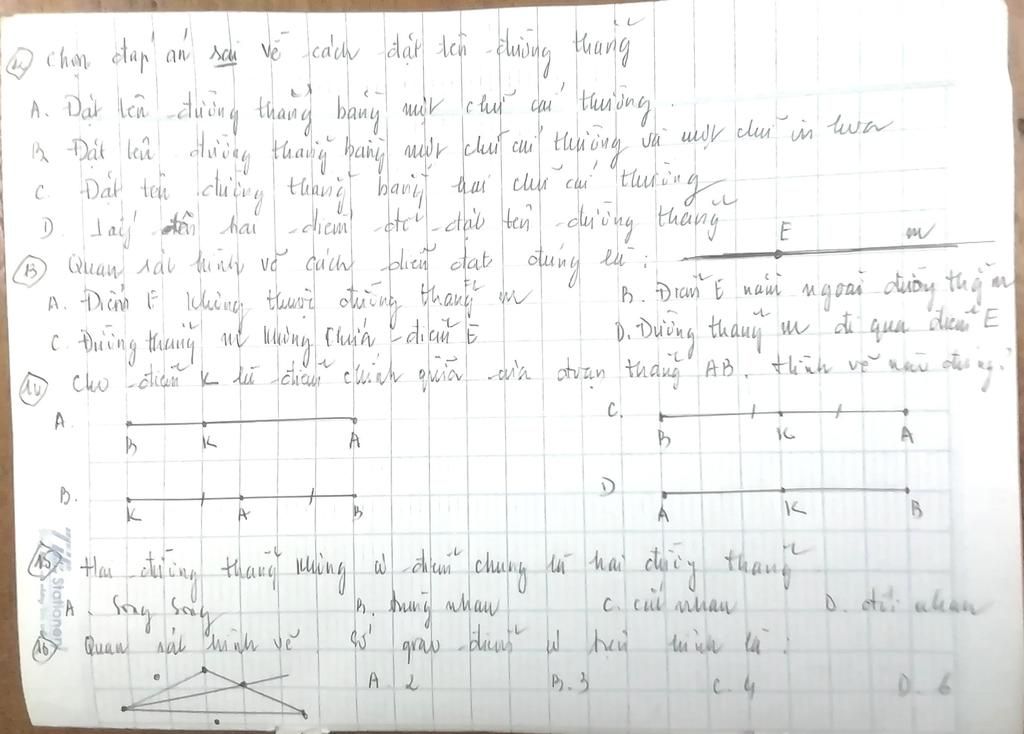 12 Chọn đáp án sai về cách đặt tên đường thẳng
A. Đặt tên đường thẳng bằng một chữ cái thường.
B. Đặt tên đường thẳng bằng một chữ cái thường và một chữ in hoa
C. Đặt tên đường thẳng bằng hai chữ cái thường
D. Lấy tên hai điểm để đặt tên đường thẳng
E m
13 Quan sát hình vẽ cách diễn đạt đúng là:
A. Điểm E không thuộc đường thẳng m B. Điểm E nằm ngoài đường thẳng m
C. Đường thẳng m không chứa điểm E D. Đường thẳng m đi qua điểm E
14 Cho điểm K là điểm chính giữa của đoạn thẳng AB. Hình vẽ nào đúng?
A. B K A C. B K A
B. K A B D A K B
15 Hai đường thẳng không có điểm chung là hai đường thẳng
A. Song Song B. trùng nhau C. cắt nhau D. đối nhau
16 Quan sát hình vẽ Số giao điểm có trên hình là:
A. 2 B. 3 C. 4 D. 6
Stationery